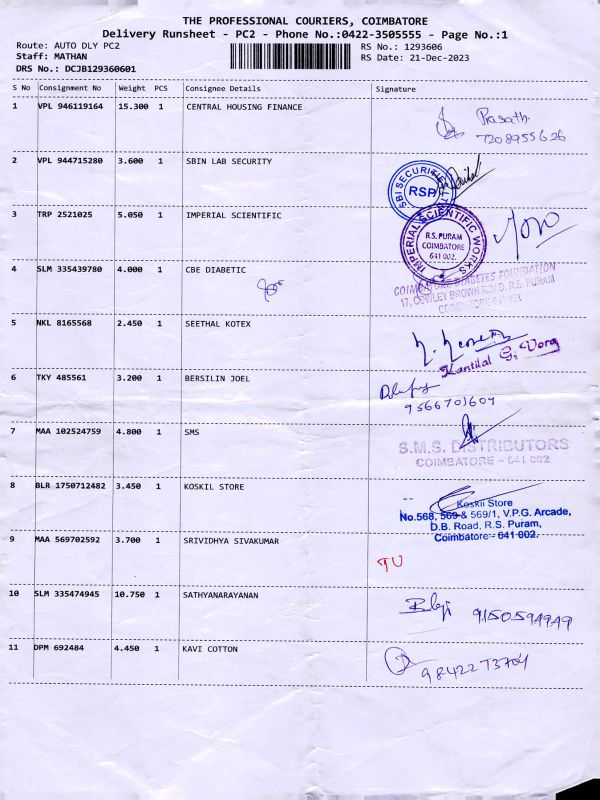 THE PROFESSIONAL COURIERS, COIMBATORE
Delivery Runsheet - PC2 - Phone No.:0422-3505555 - Page No.:1
Route: AUTO DLY PC2 RS No.: 1293606
Staff: MATHAN RS Date: 21-Dec-2023
DRS No.: DCJB129360601
S No Consignment No Weight PCS Consignee Details Signature
1 VPL 946119164 15.300 1 CENTRAL HOUSING FINANCE
Prasath.
7208955626
2 VPL 944715280 3.600 1 SBIN LAB SECURITY
SBI SECURITI
RSP
3 TRP 2521025 5.050 1 IMPERIAL SCIENTIFIC
IMPERIAL SCIENTIFIC WORKS
R.S. PURAM
COIMBATORE
641 002.
4 SLM 335439780 4.000 1 CBE DIABETIC
COIMBATORE DIABETES FOUNDATION
17, COWLEY BROWN ROAD, R.S. PURAM
COIMBATORE
5 NKL 8165568 2.450 1 SEETHAL KOTEX
Kantilal G. Vora
6 TKY 485561 3.200 1 BERSILIN JOEL
9566701604
7 MAA 102524759 4.800 1 SMS
S.M.S. DISTRIBUTORS
COIMBATORE - 641 002
8 BLR 1750712482 3.450 1 KOSKIL STORE
Koskii Store
No.568, 569 & 569/1, V.P.G. Arcade,
D.B. Road, R.S. Puram,
Coimbatore - 641 002.
9 MAA 569702592 3.700 1 SRIVIDHYA SIVAKUMAR
TU
10 SLM 335474945 10.750 1 SATHYANARAYANAN
Balaji 9150594949
11 DPM 692484 4.450 1 KAVI COTTON
9842273704